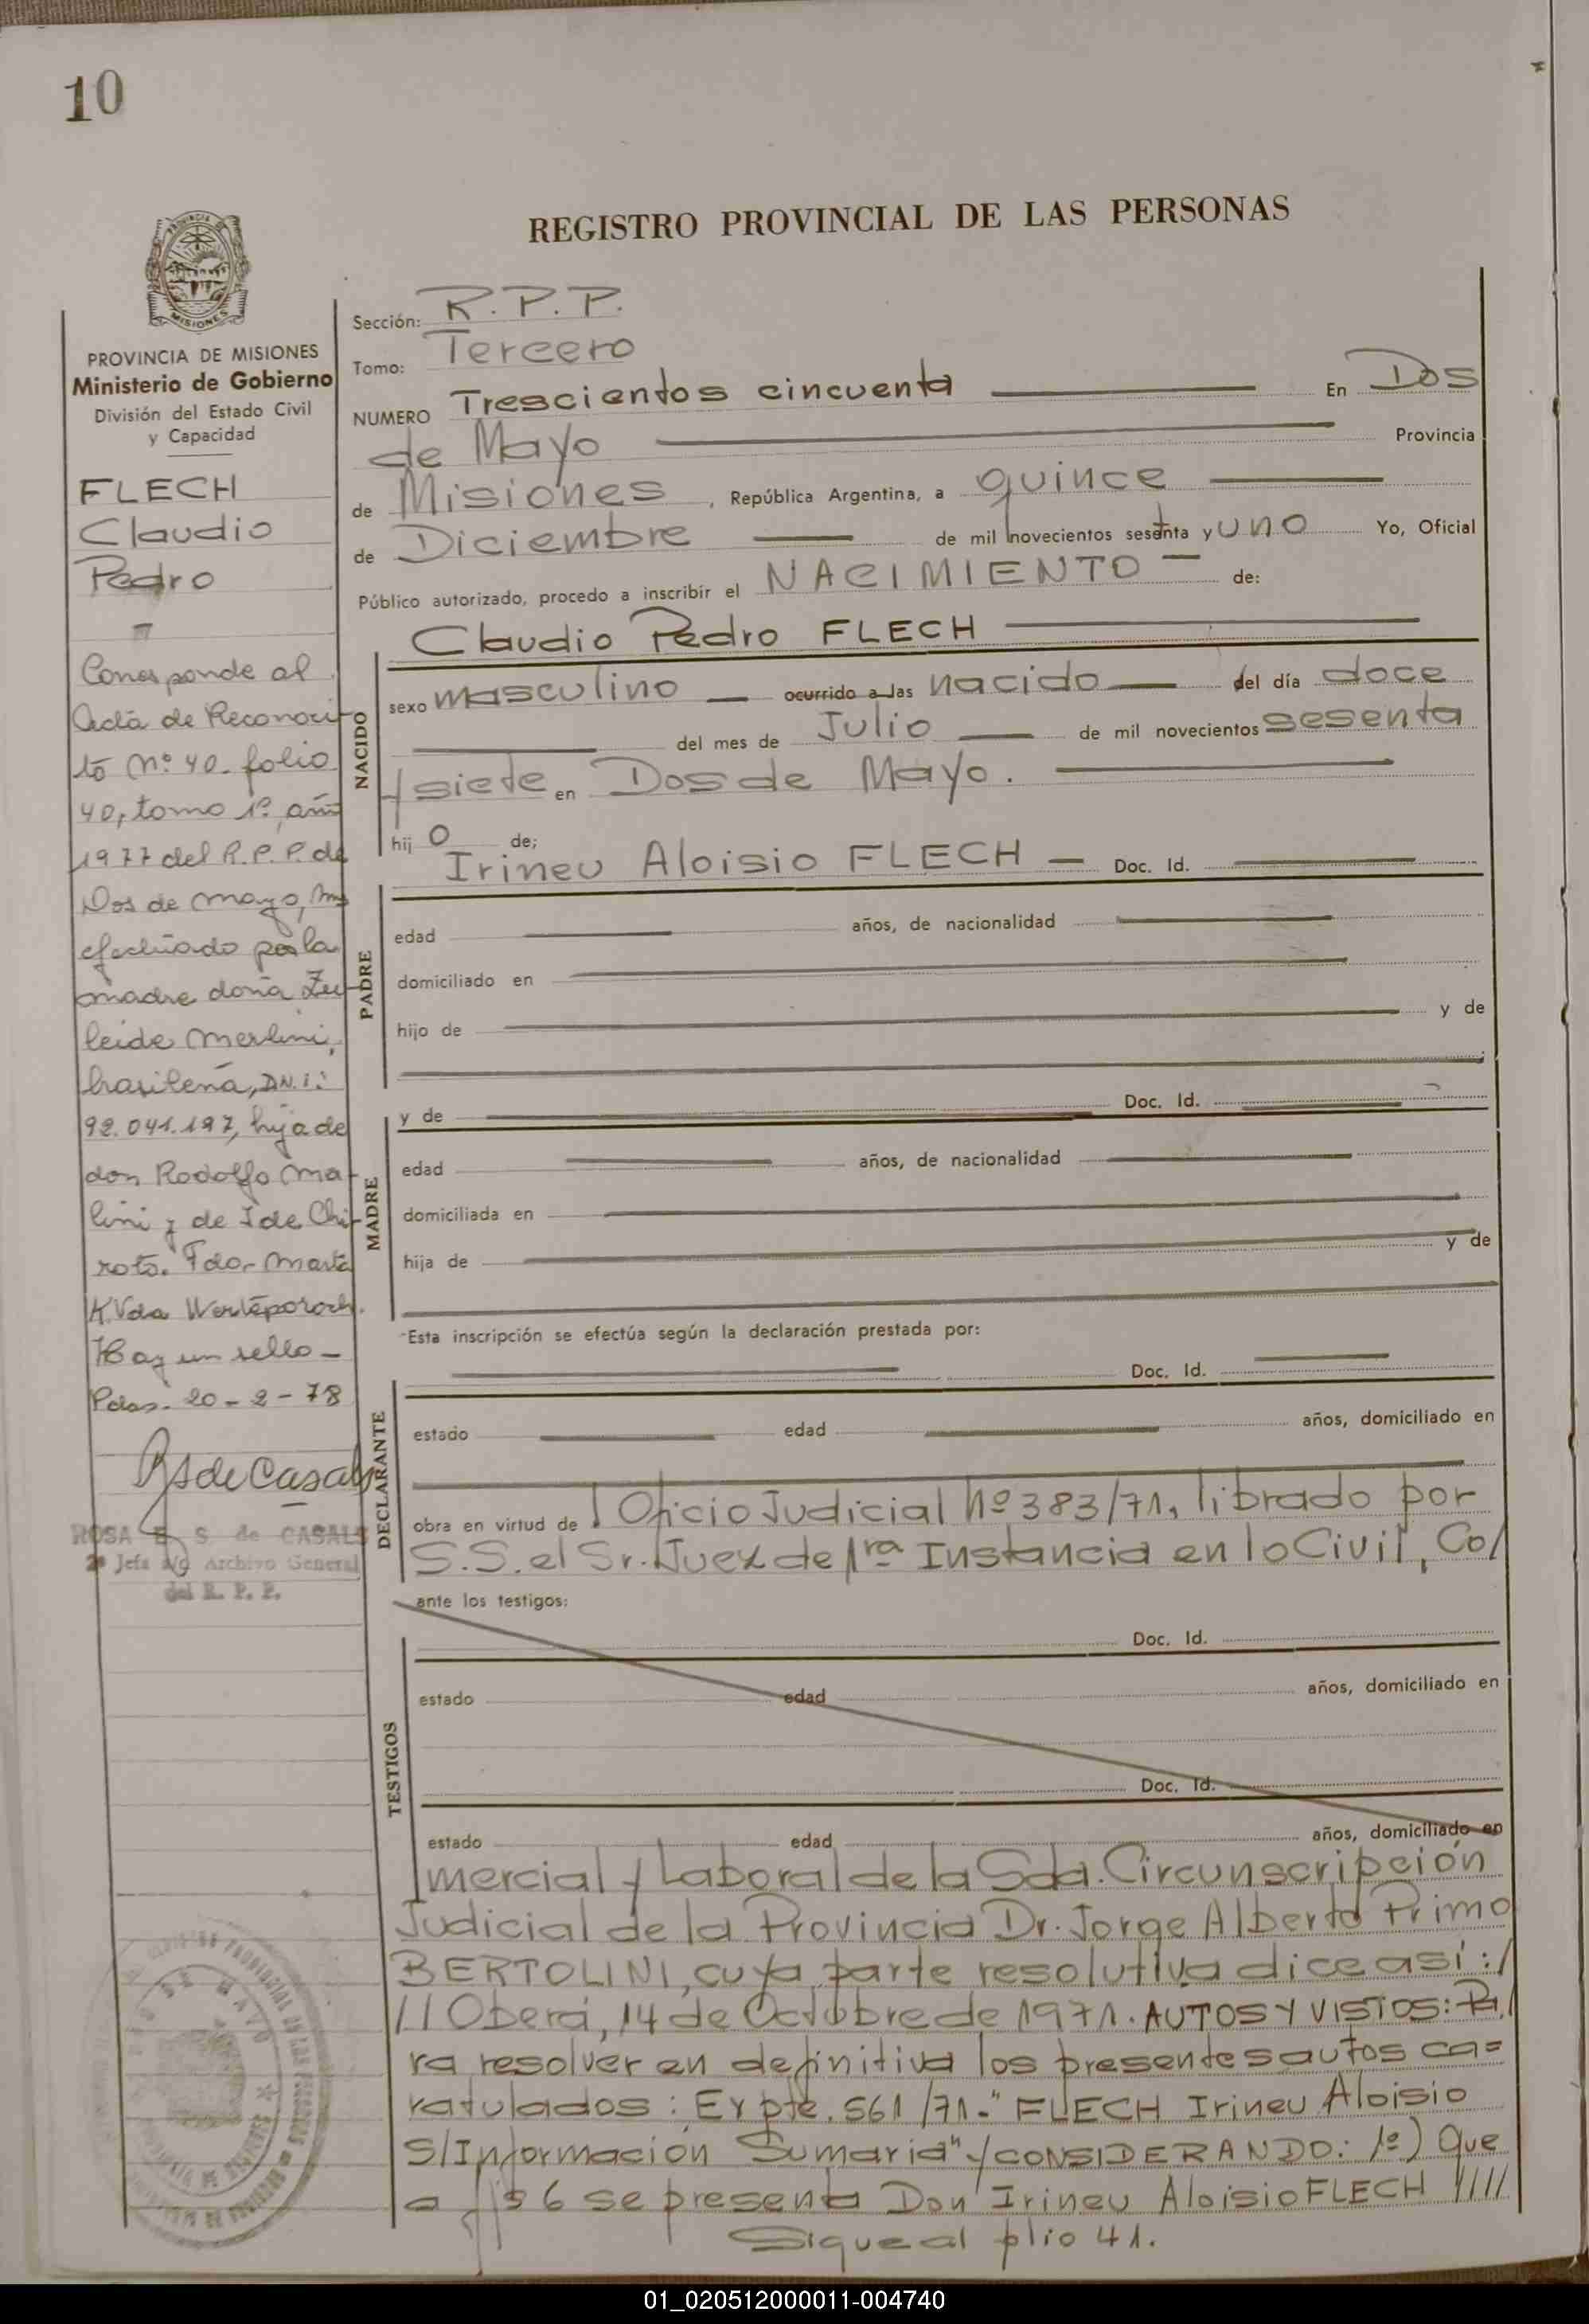 10
REGISTRO PROVINCIAL DE LAS PERSONAS
MISIONES
PROVINCIA DE MISIONES
Ministerio de Gobierno
División del Estado Civil
y Capacidad
FLECH
Claudio
Pedro
Corresponde al
Acta de Reconoci-
to Nº 40. folio
40, tomo 1º, año
1977 del R.P.P. de
Dos de mayo, Ms
efectuado por la
madre doña Zu-
leide Merlini,
brasileña, D.N.I.:
92.041.197, hija de
don Rodolfo Ma-
lini y de Ide Chi-
roto. Fdo. Marta
K. Vda
Hay un sello -
Pdas. 20-2-78
RS de Casals
ROSA E. S. de CASALS
2º Jefa a/c Archivo General
del R. P. P.
Sección: R.P.P.
Tomo: Tercero
NUMERO Trescientos cincuenta En Dos
de Mayo Provincia
de Misiones, República Argentina, a quince
de Diciembre de mil novecientos sesenta y uno Yo, Oficial
Público autorizado, procedo a inscribir el NACIMIENTO de:
Claudio Pedro FLECH
NACIDO
sexo masculino ocurrido a las nacido del día doce
del mes de Julio de mil novecientos sesenta
y siete en Dos de Mayo.
hij o de;
Irineu Aloisio FLECH Doc. Id.
PADRE
edad años, de nacionalidad
domiciliado en
hijo de y de
y de Doc. Id.
MADRE
edad años, de nacionalidad
domiciliada en
hija de y de
Esta inscripción se efectúa según la declaración prestada por:
Doc. Id.
DECLARANTE
estado edad años, domiciliado en
obra en virtud de Oficio Judicial Nº 383/71, librado por
S.S. el Sr. Juez de 1ra Instancia en lo Civil, Co/
ante los testigos:
Doc. Id.
TESTIGOS
estado edad años, domiciliado en
Doc. Id.
estado edad años, domiciliado en
mercial y Laboral de la Sda. Circunscripción
Judicial de la Provincia Dr. Jorge Alberto Primo
BERTOLINI, cuya parte resolutiva dice así:/
// Oberá, 14 de Octubre de 1971. AUTOS Y VISTOS: Pa/
ra resolver en definitiva los presentes autos ca=
ratulados: Expte. 561/71-"FLECH Irineu Aloisio
S/Información Sumaria" y CONSIDERANDO: 1º) Que
a fjs 6 se presenta Don Irineu Aloisio FLECH ////
Sigue al plio 41.
01_020512000011-004740